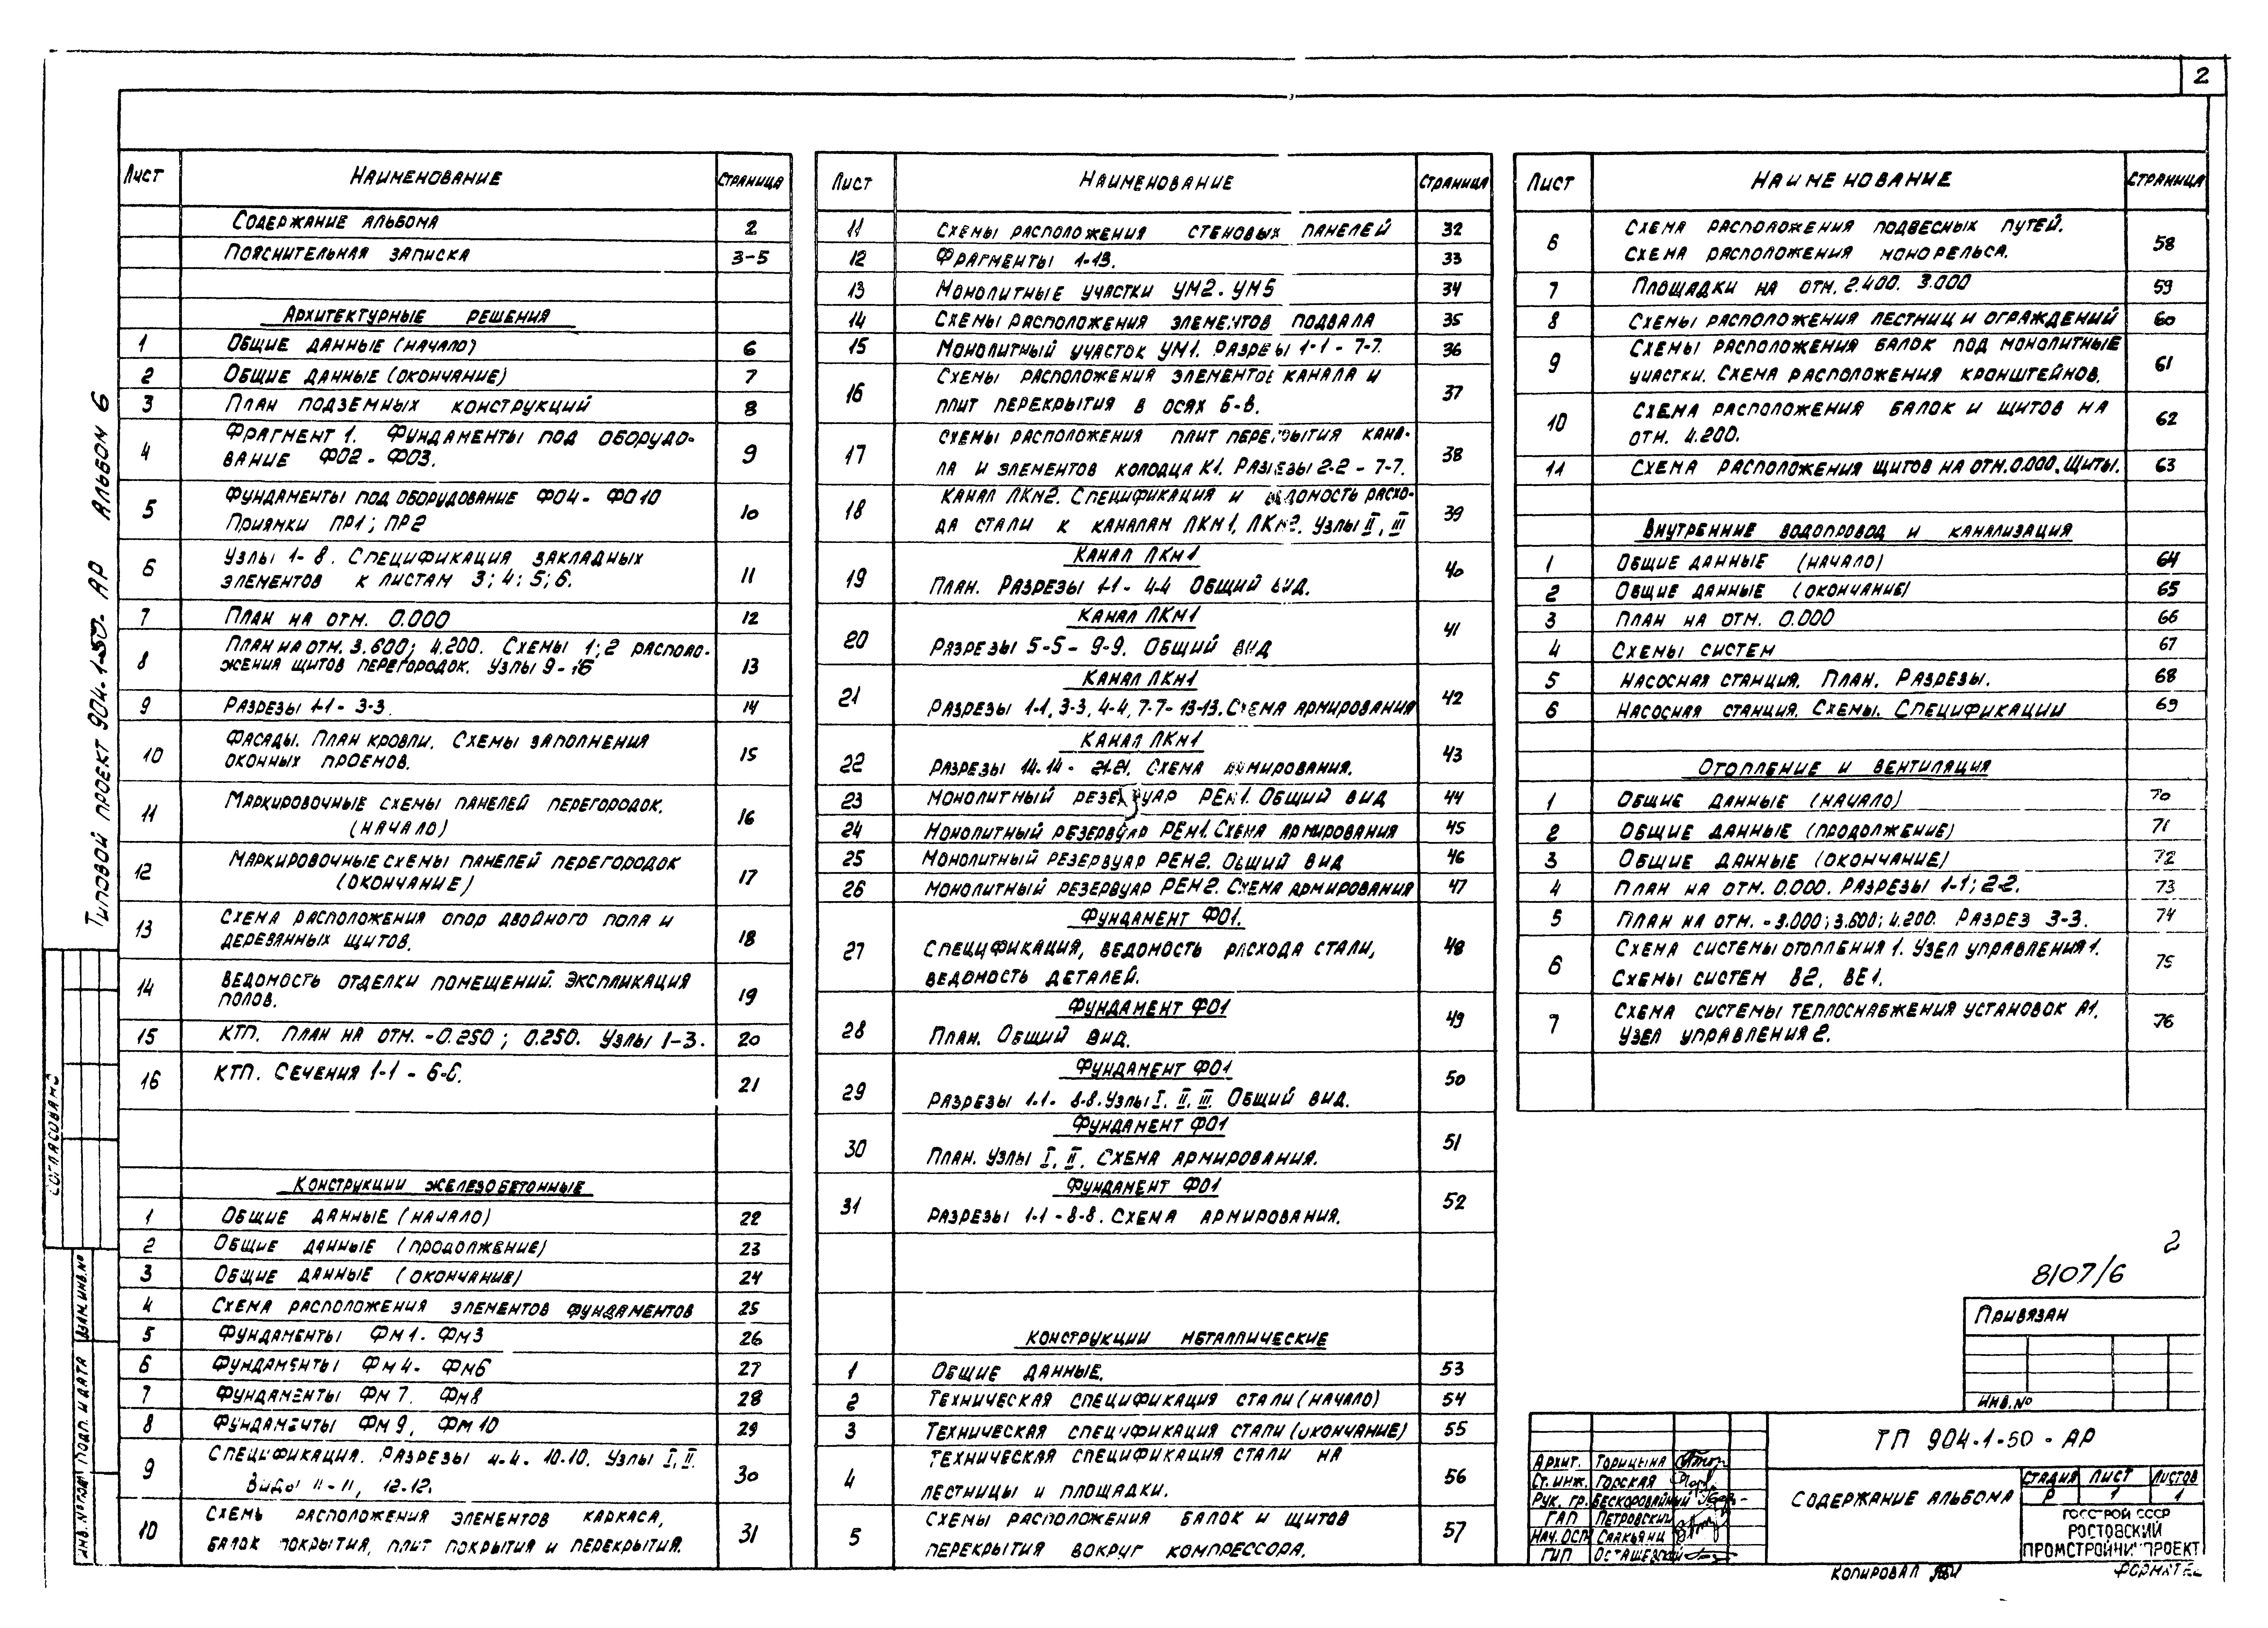 2
Типовой проект 904-1-50- АР Альбом 6
Лист Наименование Страница
Содержание альбома 2
Пояснительная записка 3-5
Архитектурные решения
1 Общие данные (начало) 6
2 Общие данные (окончание) 7
3 План подземных конструкций 8
4 Фрагмент 1. Фундаменты под оборудо- 9
вание Ф02-Ф03.
5 Фундаменты под оборудование Ф04- Ф010 10
Приямки ПР1; ПР2
6 Узлы 1-8. Спецификация закладных 11
элементов к листам 3; 4; 5; 6.
7 План на отм. 0.000 12
8 План на отм. 3.600; 4.200. Схемы 1; 2 располо- 13
жения щитов перегородок. Узлы 9-16
9 Разрезы 1-1 - 3-3. 14
10 Фасады. План кровли. Схемы заполнения 15
оконных проемов.
11 Маркировочные схемы панелей перегородок. 16
(начало)
12 Маркировочные схемы панелей перегородок 17
(окончание)
13 Схема расположения опор двойного пола и 18
деревянных щитов.
14 Ведомость отделки помещений. Экспликация 19
полов.
15 КТП. План на отм. -0.250; 0.250. Узлы 1-3. 20
16 КТП. Сечения 1-1 - 6-6. 21
Конструкции железобетонные
1 Общие данные (начало) 22
2 Общие данные (продолжение) 23
3 Общие данные (окончание) 24
4 Схема расположения элементов фундаментов 25
5 Фундаменты Фм1-Фм3 26
6 Фундаменты Фм4- Фм6 27
7 Фундаменты Фм7, Фм8 28
8 Фундаменты Фм9, Фм10 29
9 Спецификация. Разрезы 4-4-10-10. Узлы I, II. 30
Виды 11-11, 12-12.
10 Схемы расположения элементов каркаса, 31
балок покрытия, плит покрытия и перекрытия.
Лист Наименование Страница
11 Схемы расположения стеновых панелей 32
12 Фрагменты 1-13. 33
13 Монолитные участки УМ2-УМ5 34
14 Схемы расположения элементов подвала 35
15 Монолитный участок УМ1. Разрезы 1-1 - 7-7. 36
16 Схемы расположения элементов канала и 37
плит перекрытия в осях Б-В.
17 Схемы расположения плит перекрытия кана- 38
ла и элементов колодца К1. Разрезы 2-2 - 7-7.
18 Канал ЛКм2. Спецификация и ведомость расхо- 39
да стали к каналам ЛКм1, ЛКм2. Узлы II, III
Канал ЛКм1
19 План. Разрезы 1-1 - 4-4 Общий вид. 40
Канал ЛКм1
20 Разрезы 5-5 - 9-9. Общий вид 41
Канал ЛКм1
21 Разрезы 1-1, 3-3, 4-4, 7-7- 13-13. Схема армирования 42
Канал ЛКм1
22 Разрезы 14-14 - 21-21. Схема армирования. 43
23 Монолитный резервуар РЕм1. Общий вид 44
24 Монолитный резервуар РЕм1. Схема армирования 45
25 Монолитный резервуар РЕм2. Общий вид 46
26 Монолитный резервуар РЕм2. Схема армирования 47
Фундамент Ф01.
27 Спецификация, ведомость расхода стали, 48
ведомость деталей.
Фундамент Ф01
28 План. Общий вид. 49
Фундамент Ф01
29 Разрезы 1-1- 8-8. Узлы I, II, III. Общий вид. 50
Фундамент Ф01
30 План. Узлы I, II. Схема армирования. 51
Фундамент Ф01
31 Разрезы 1-1 - 8-8. Схема армирования. 52
Конструкции металлические
1 Общие данные. 53
2 Техническая спецификация стали (начало) 54
3 Техническая спецификация стали (окончание) 55
4 Техническая спецификация стали на 56
лестницы и площадки.
5 Схемы расположения балок и щитов 57
перекрытия вокруг компрессора.
Лист Наименование Страница
6 Схема расположения подвесных путей. 58
Схема расположения монорельса.
7 Площадки на отм. 2.400. 3.000 59
8 Схемы расположения лестниц и ограждений 60
9 Схемы расположения балок под монолитные 61
участки. Схема расположения кронштейнов.
10 Схема расположения балок и щитов на 62
отм. 4.200.
11 Схема расположения щитов на отм. 0.000. Щиты. 63
Внутренние водопровод и канализация
1 Общие данные (начало) 64
2 Общие данные (окончание) 65
3 План на отм. 0.000 66
4 Схемы систем 67
5 Насосная станция. План. Разрезы. 68
6 Насосная станция. Схемы. Спецификации 69
Отопление и вентиляция
1 Общие данные (начало) 70
2 Общие данные (продолжение) 71
3 Общие данные (окончание) 72
4 План на отм. 0.000. Разрезы 1-1; 2-2. 73
5 План на отм. -3.000; 3.600; 4.200. Разрез 3-3. 74
6 Схема системы отопления 1. Узел управления 1. 75
Схемы систем В2, ВЕ1.
7 Схема системы теплоснабжения установок А1. 76
Узел управления 2.
2
8107/6
Привязан
Инв.№
ТП 904-1-50 - АР
Архит. Торицына
Ст. инж. Горская
Рук. гр. Бескоровайный
ГАП Петровский
Нач. ОСП Саакьянц
ГИП Осташевский
Содержание альбома
Стадия Лист Листов
Р 1 1
Госстрой СССР
Ростовский
Промстройниипроект
Копировал
Формат
Согласовано
Взам. инв. №
Подп. и дата
Инв. № подл